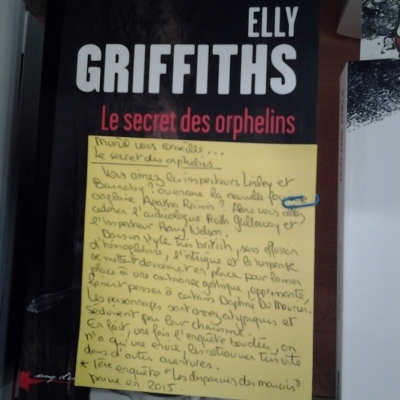 ELLY
GRIFFITHS
Le secret des orphelins
vous conseille...
Le secret des orphelins
Vous aimez les inspecteurs Linley et
Barnaby ? ou encore la nouvelle
anglaise Agatha Raisin ? Alors vous
adorer l'archéologue Ruth Galloway et
l'inspecteur Harry Nelson.
Dans un style très british, sans effusion
d'hémoglobine, l'intrigue et le suspense
se mettent doucement en place pour laisser
place à une ambiance gothique, oppressante,
faisant penser à certains Daphné Du Maurier.
Les personnages sont assez atypiques et
séduisent par leur charisme.
En fait, une fois l'enquête bouclée, on
n'a qu'une envie, les retrouver très vite
dans d'autres aventures.
* 1ère enquête "Les disparues du marais"
parue en 2015.